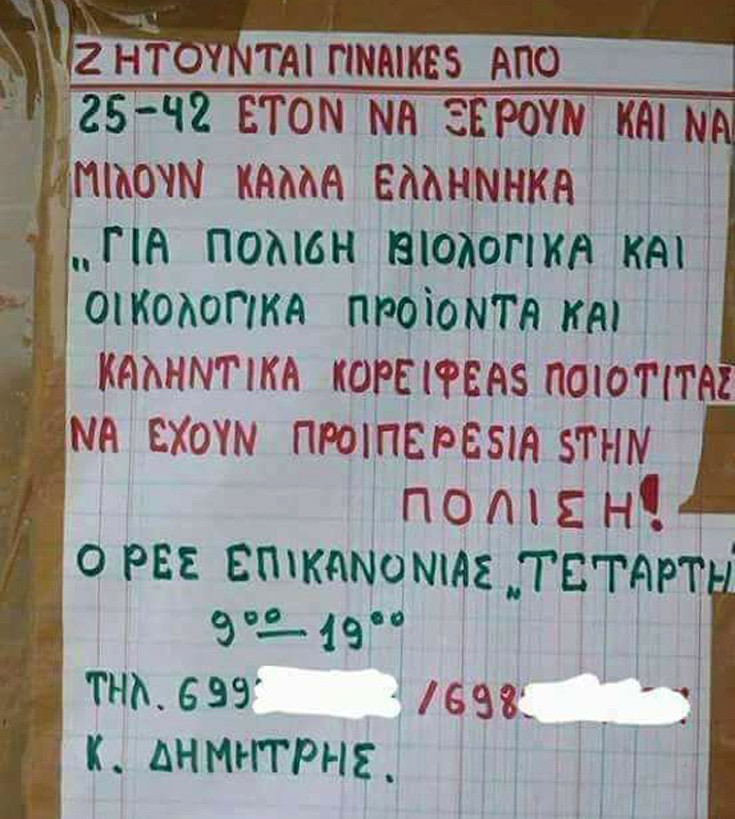 ΖΗΤΟΥΝΤΑΙ ΓΙΝΑΙΚΕS ΑΠΟ
25-42 ΕΤΟΝ ΝΑ ΞΕΡΟΥΝ ΚΑΙ ΝΑ
ΜΙΛΟΥΝ ΚΑΛΛΑ ΕΛΛΗΝΗΚΑ
„ΓΙΑ ΠΟΛΙΣΗ ΒΙΟΛΟΓΙΚΑ ΚΑΙ
ΟΙΚΟΛΟΓΙΚΑ ΠΡΟΪΟΝΤΑ ΚΑΙ
ΚΑΛΗΝΤΙΚΑ ΚΟΡΕΙΦΕΑS ΠΟΙΟΤΙΤΑΣ
ΝΑ ΕΧΟΥΝ ΠΡΟΙΠΕΡΕSΙΑ SΤΗΝ
ΠΟΛΙΣΗ!
Ο ΡΕΣ ΕΠΙΚΑΝΟΝΙΑΣ „ΤΕΤΑΡΤΗ"
9⁰⁰–19⁰⁰
ΤΗΛ. 699 /698
Κ. ΔΗΜΗΤΡΗΣ.